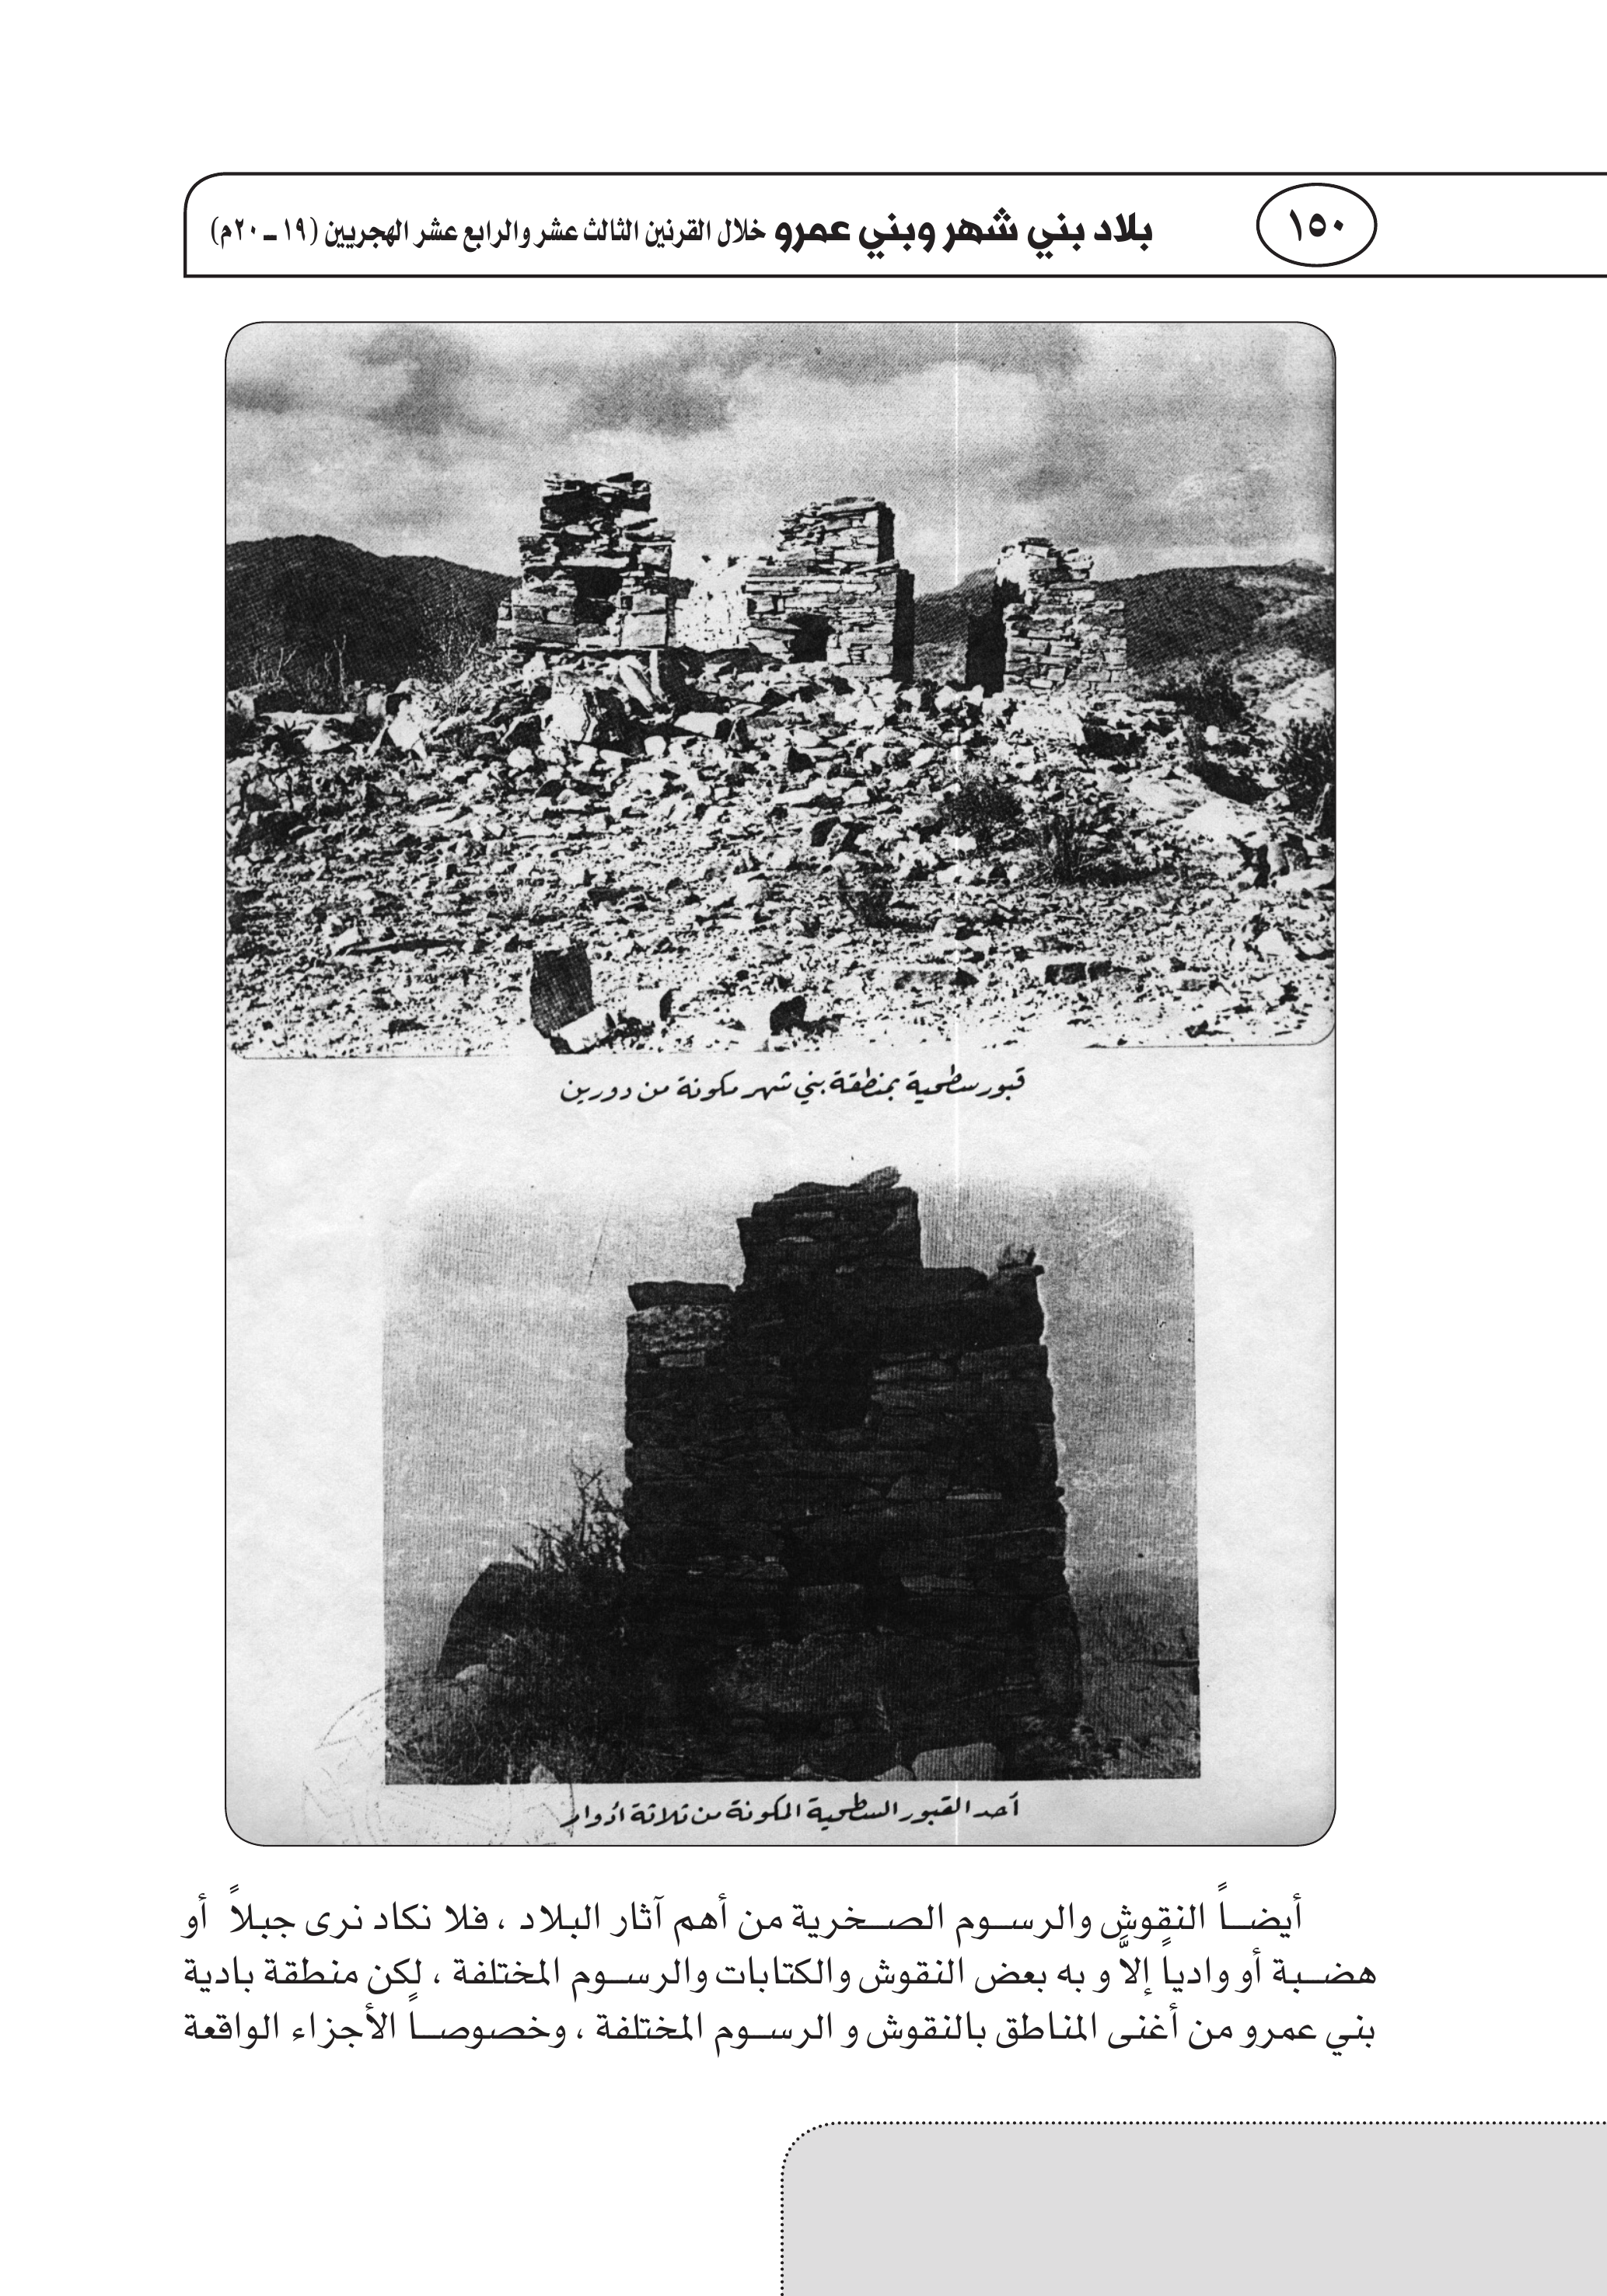 ١٥٠
بلاد بني شهر وبني عمرو خلال القرنين الثالث عشر والرابع عشر الهجريين (١٩ ـ ٢٠م)
قبور سطحية بمنطقة بني شهر مكونة من دورين
أحد القبور السطحية المكونة من ثلاثة أدوار
أيضاً النقوش والرسوم الصخرية من أهم آثار البلاد ، فلا نكاد نرى جبلاً أو
هضبة أو وادياً إلاَّ و به بعض النقوش والكتابات والرسوم المختلفة ، لكن منطقة بادية
بني عمرو من أغنى المناطق بالنقوش و الرسوم المختلفة ، وخصوصاً الأجزاء الواقعة